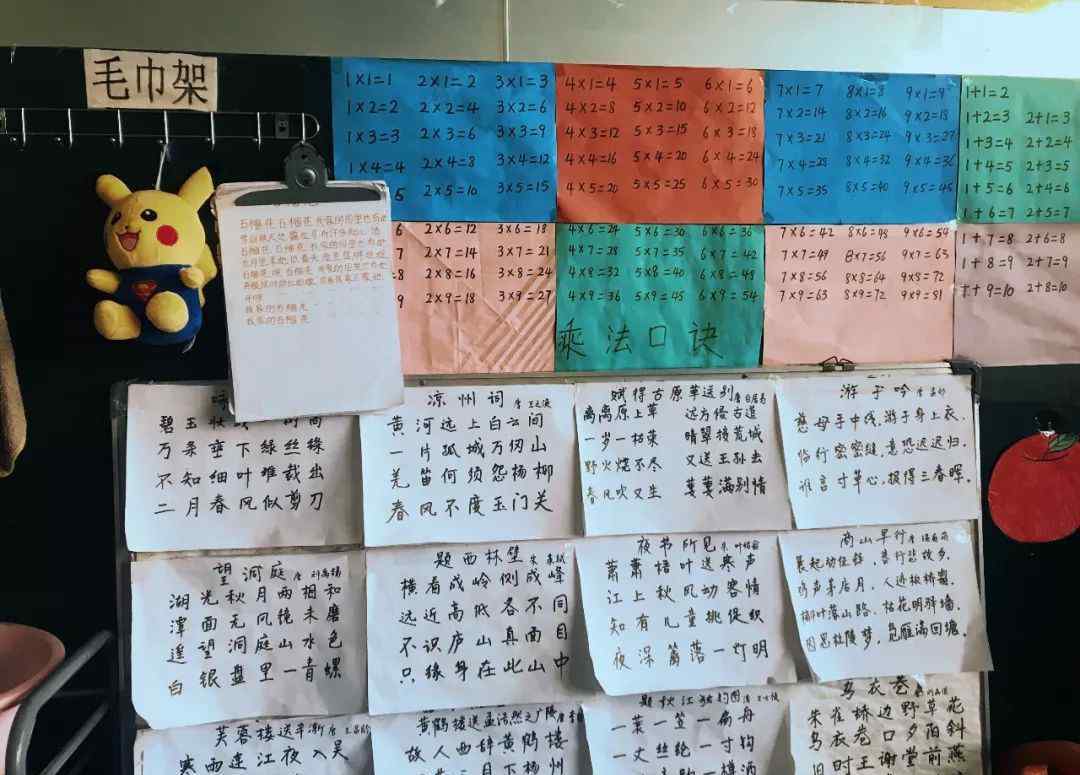 毛巾架
1×1=1 2×1=2 3×1=3
1×2=2 2×2=4 3×2=6
1×3=3 2×3=6 3×3=9
1×4=4 2×4=8 3×4=12
5 2×5=10 3×5=15
4×1=4 5×1=5 6×1=6
4×2=8 5×2=10 6×2=12
4×3=12 5×3=15 6×3=18
4×4=16 5×4=20 6×4=24
4×5=20 5×5=25 6×5=30
7×1=7 8×1=8 9×1=9
7×2=14 8×2=16 9×2=18
7×3=21 8×3=24 9×3=27
7×4=28 8×4=32 9×4=36
7×5=35 8×5=40 9×5=45
1+1=2
1+2=3 2+1=3
1+3=4 2+2=4
1+4=5 2+3=5
1+5=6 2+4=6
1+6=7 2+5=7
6 2×6=12 3×6=18
7 2×7=14 3×7=21
=8 2×8=16 3×8=24
9 2×9=18 3×9=27
4×6=24 5×6=30 6×6=36
4×7=28 5×7=35 6×7=42
4×8=32 5×8=40 6×8=48
4×9=36 5×9=45 6×9=54
乘法口诀
7×6=42 8×6=48 9×6=54
7×7=49 8×7=56 9×7=63
7×8=56 8×8=64 9×8=72
7×9=63 8×9=72 9×9=81
1+7=8 2+6=8
1+8=9 2+7=9
1+9=10 2+8=10
我家的石榴花
碧玉妆
万条垂下绿丝绦
不知细叶谁裁出
二月春风似剪刀
凉州词 唐 王之涣
黄河远上白云间
一片孤城万仞山
羌笛何须怨杨柳
春风不度玉门关
赋得古原草送别 唐 白居易
离离原上草 远方侵古道
一岁一枯荣 晴翠接荒城
野火烧不尽 又送王孙去
春风吹又生 萋萋满别情
游子吟 唐 孟郊
慈母手中线,游子身上衣,
临行密密缝,意恐迟迟归。
谁言寸草心,报得三春晖。
望洞庭 唐 刘禹锡
湖光秋月两相和
潭面无风镜未磨
遥望洞庭山水色
白银盘里一青螺
题西林壁 宋 苏轼
横看成岭侧成峰
远近高低各不同
不识庐山真面目
只缘身在此山中
夜书所见 宋 叶绍翁
萧萧梧叶送寒声
江上秋风动客情
知有儿童挑促织
夜深篱落一灯明
商山早行 唐 温庭筠
晨起动征铎,客行悲故乡。
鸡声茅店月,人迹板桥霜。
槲叶落山路,枳花明驿墙。
因思杜陵梦,凫雁满回塘。
芙蓉楼送辛渐 唐 王昌龄
寒雨连江夜入吴
黄鹤楼送孟浩然之广陵
故人西辞黄鹤楼
三月下扬州
题秋江独钓图 清 王士祯
一蓑一笠一扁舟
一丈丝纶一寸钩
一樽酒
乌衣巷 唐 刘禹锡
朱雀桥边野草花
乌衣巷口夕阳斜
旧时王谢堂前燕